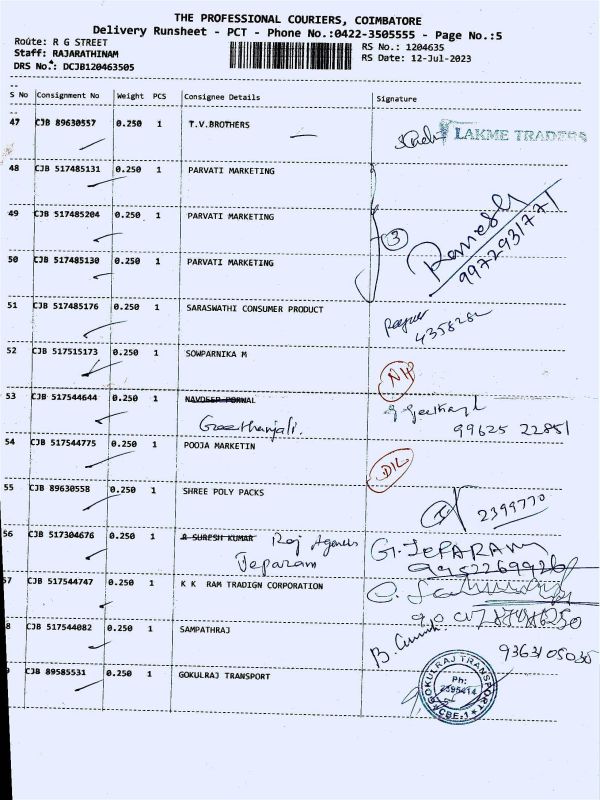 THE PROFESSIONAL COURIERS, COIMBATORE
Delivery Runsheet - PCT - Phone No.:0422-3505555 - Page No.:5
Route: R G STREET
RS No.: 1204635
Staff: RAJARATHINAM
RS Date: 12-Jul-2023
DRS No.: DCJB120463505
S No Consignment No Weight PCS Consignee Details Signature
47 CJB 89630557 0.250 1 T.V.BROTHERS LAKME TRADERS
48 CJB 517485131 0.250 1 PARVATI MARKETING
49 CJB 517485204 0.250 1 PARVATI MARKETING
3 Ramesh
9972931771
50 CJB 517485130 0.250 1 PARVATI MARKETING
51 CJB 517485176 0.250 1 SARASWATHI CONSUMER PRODUCT
4358282
52 CJB 517515173 0.250 1 SOWPARNIKA M
53 CJB 517544644 0.250 1 NAVDEEP PORWAL
Geethanjali.
99625 22851
54 CJB 517544775 0.250 1 POOJA MARKETIN
D/L
55 CJB 89630558 0.250 1 SHREE POLY PACKS
2399770
56 CJB 517304676 0.250 1 R SURESH KUMAR Raj Agencies G. JEPARAM
Jeparam
57 CJB 517544747 0.250 1 K K RAM TRADIGN CORPORATION
8 CJB 517544082 0.250 1 SAMPATHRAJ
9363105035
9 CJB 89585531 0.250 1 GOKULRAJ TRANSPORT
GOKULRAJ TRANSPORT
Ph:
2395414
CBE-1